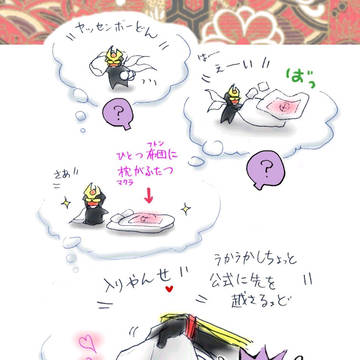 ヤッセンボーどん
?
ぱー
えーい!!
ばっ
?
さあ!!
ひとつ布団に
フトン
枕がふたつ
マクラ
入りやんせ
うかうかしちょっと
公式に先を
越さるっど